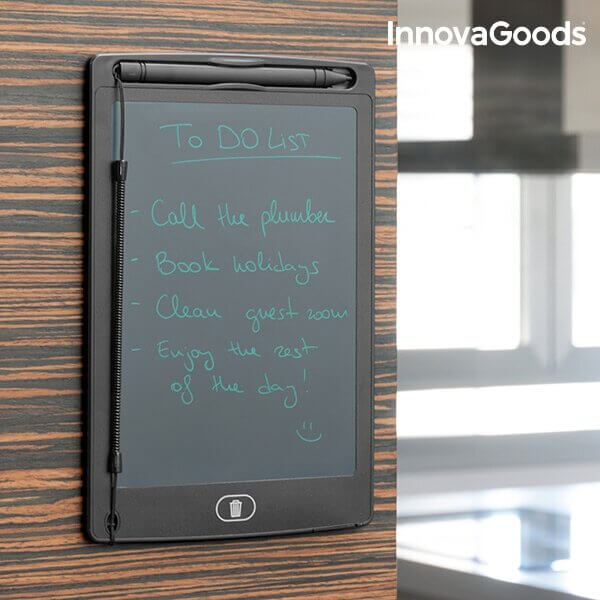 InnovaGoods
To DO LIST
- Call the plumber
- Book holidays
- Clean guest room
- Enjoy the rest
of the day!